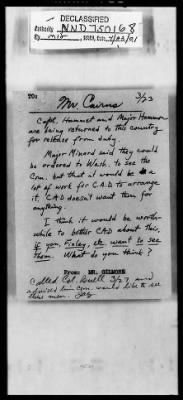 DECLASSIFIED
Authority NND 750168
TO:
Mr Cairns 3/23
Capt. Hammet and Major Hammon
are being returned to this country
for release from duty.
Major Minard said they would
be ordered to Wash. to see the
Com. but that it would be a
lot of work for CAD to arrange
it. CAD doesn't want them for
anything.
I think it would be worth-
while to letter CAD about this,
if you, Finley, etc want to see
them. What do you think?
From MR. GILMORE
Called Col. 3/27 and
advised him Com. would like to see
these men.